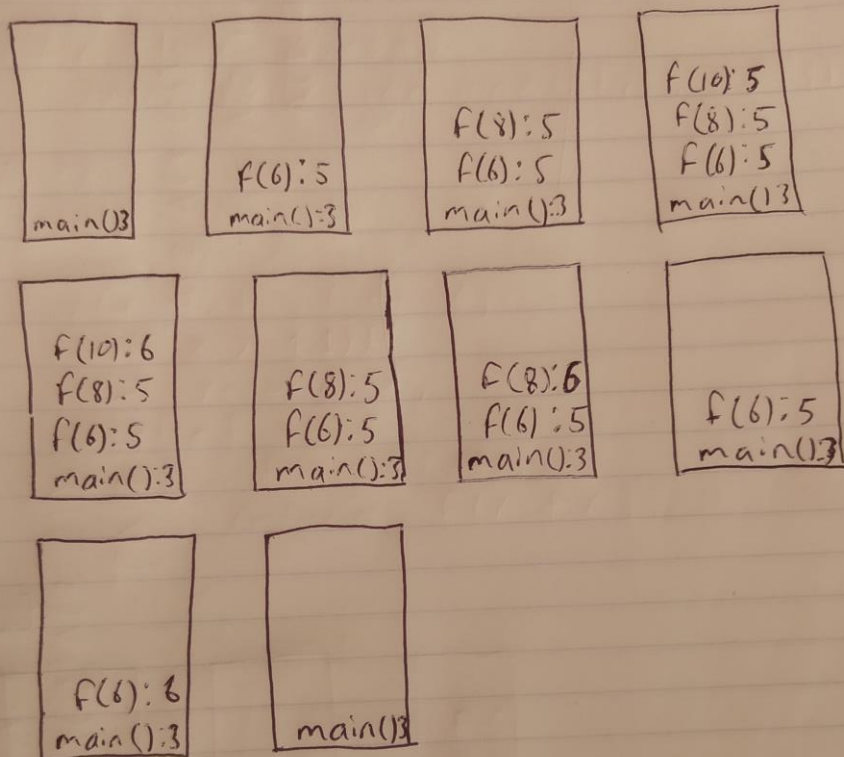 main()3
f(6):5
main():3
f(8):5
f(6):5
main():3
f(10):5
f(8):5
f(6):5
main()3
f(10):6
f(8):5
f(6):5
main():3
f(8):5
f(6):5
main():3
f(8):6
f(6):5
main():3
f(6):5
main():3
f(6):6
main():3
main()3